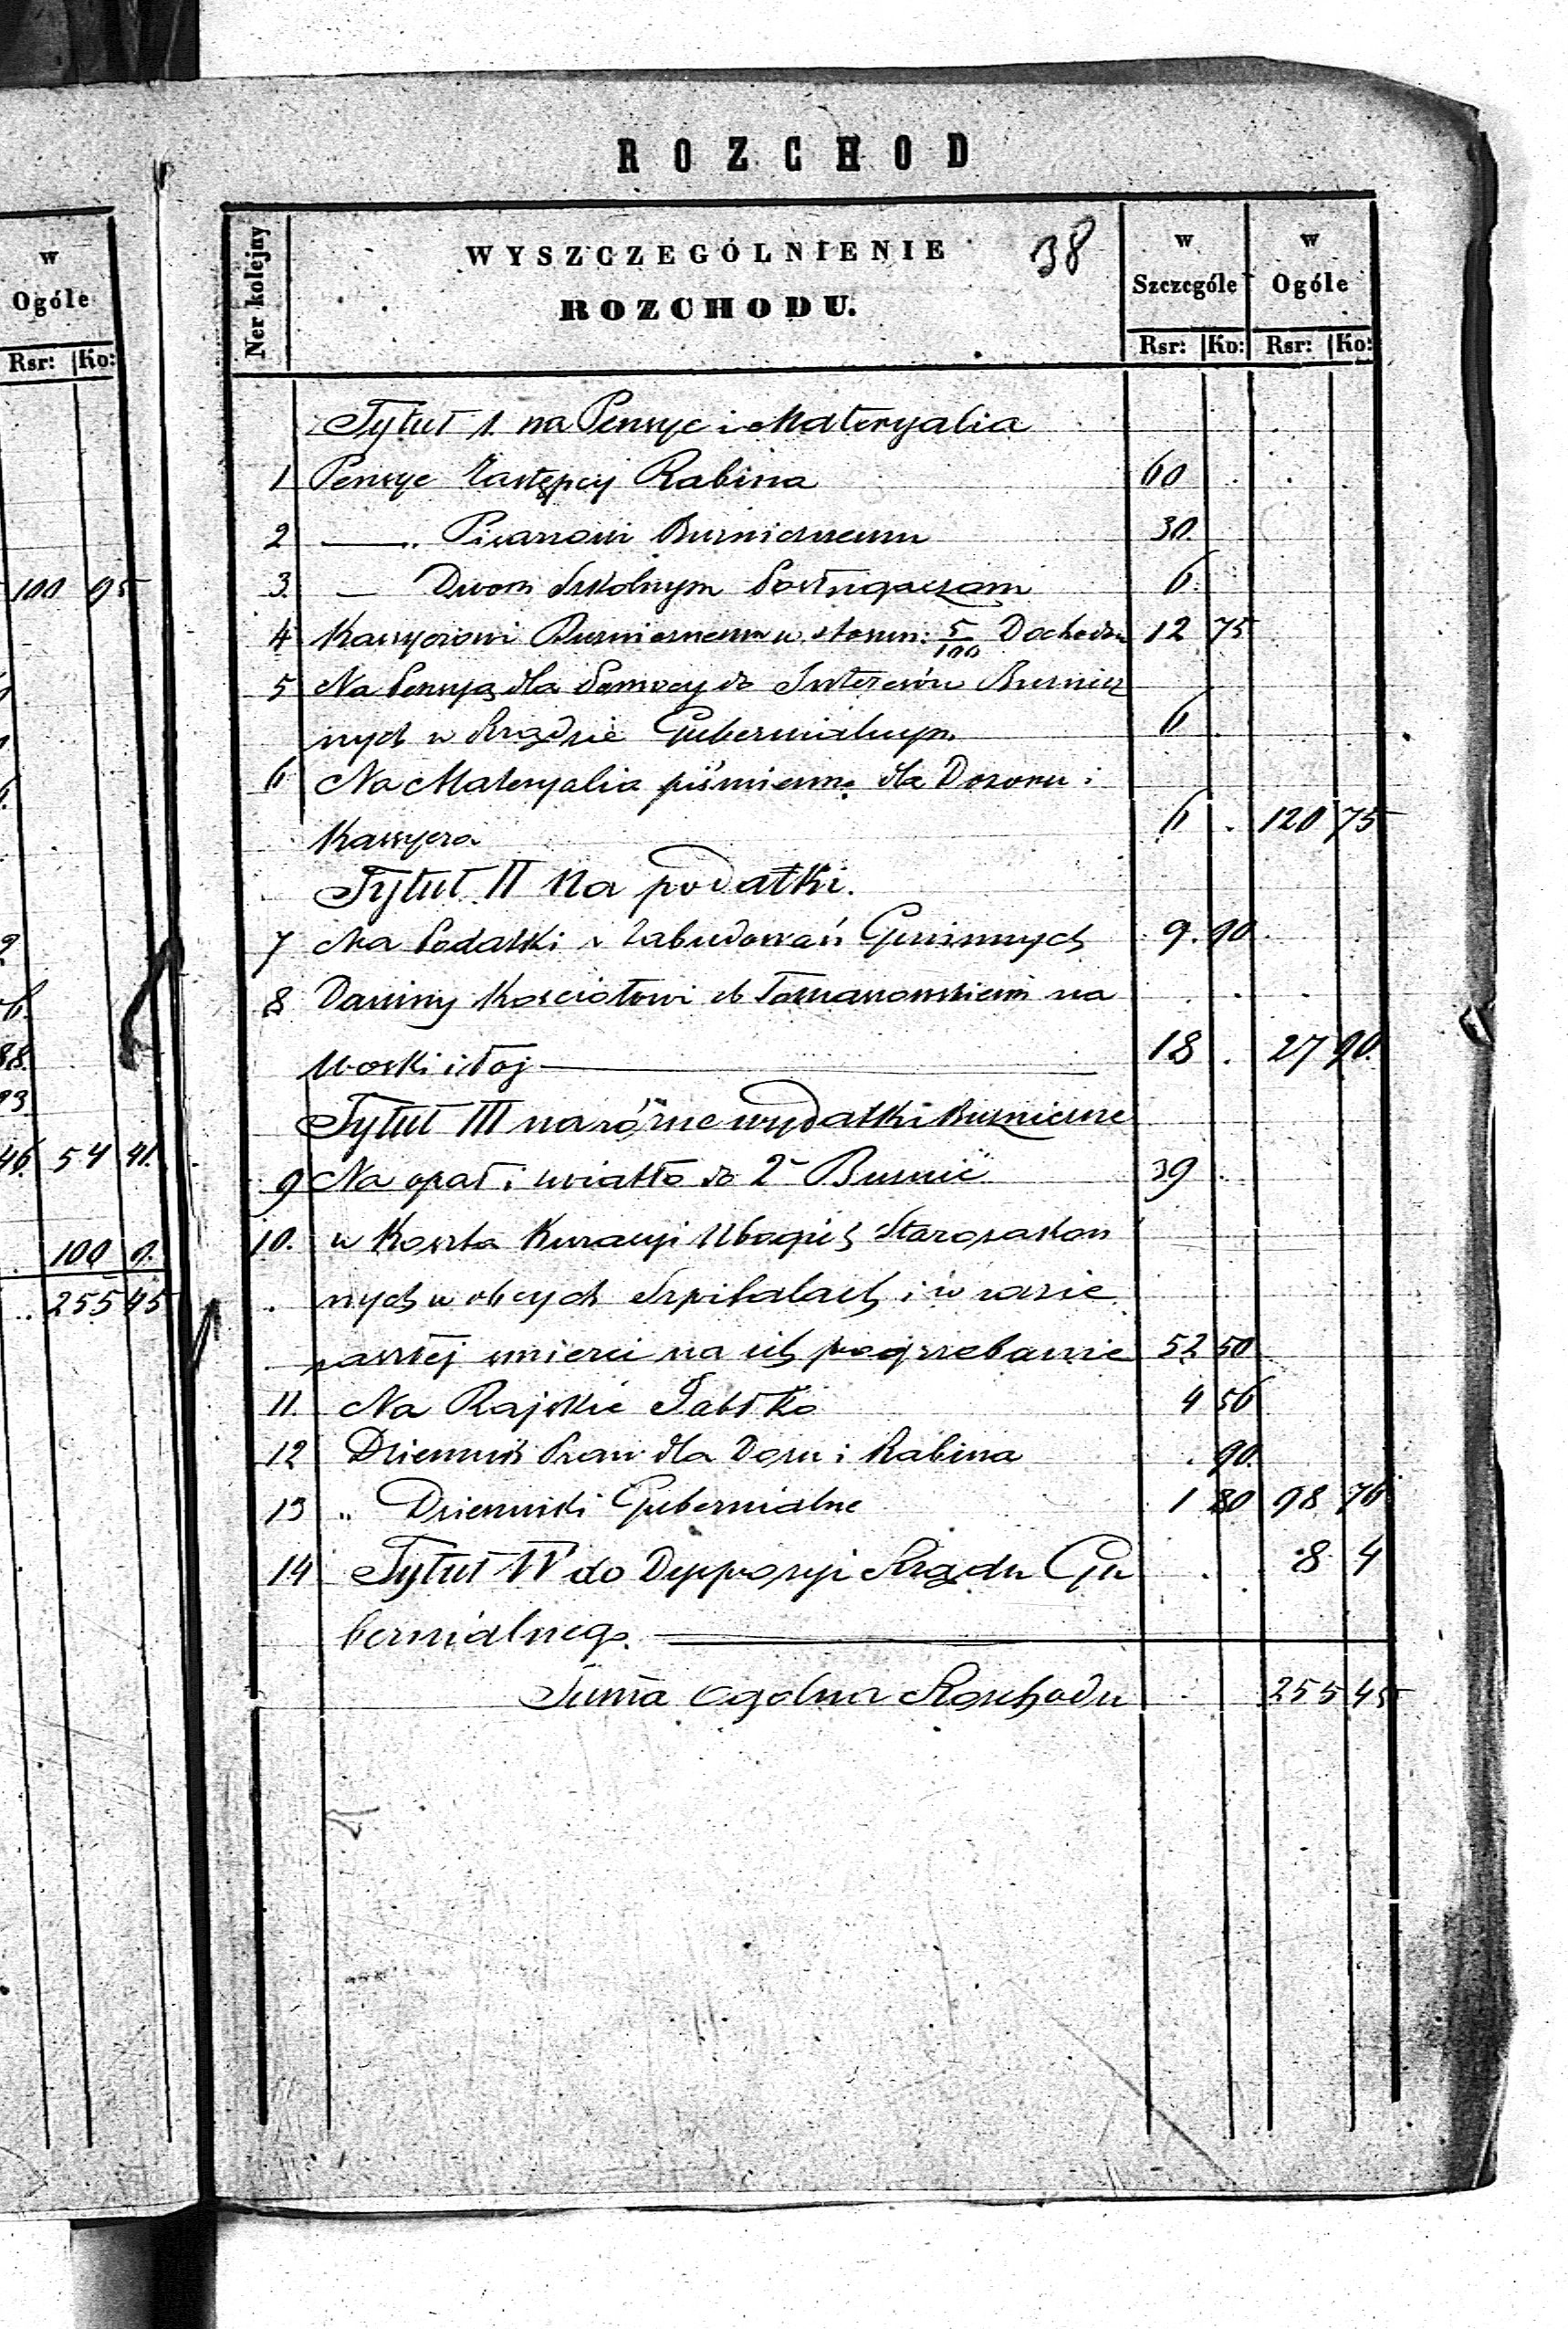 w
Ogóle
Rsr: Ko:
100 95
88.
93.
46. 54 41.
100 0.
255 45
ROZCHOD
Ner kolejny
WYSZCZEGÓLNIENIE 38
ROZCHODU.
w Szczególe
w Ogóle
Rsr: Ko: Rsr: Ko:
Tytuł 1. na Pensye i Materyalia
1 Pensye Zastępcy Rabina 60
2 —— Pisarzowi Bużnicznemu 30.
3. — Dwom Szkolnym Posługaczom 6.
4 Kassyerowi Bużnicznemu w stosun: 5/100 Dochodu 12 75
5 Na Pensyą dla Pomocy do Interesów Bużnicz
nych w Rządzie Gubernialnym 6.
6 Na Materyalia piśmienne dla Dozoru i
Kassyera 6. 120 75
Tytuł II Na podatki.
7 Na Podatki z Zabudowań Gminnych 9. 90
8 Daniny Kościołowi w na
Woski i łoj —— 18. 27 90.
Tytuł III na różne wydatki Bużniczne
9 Na opał i swiatło do 2 Bużnic 39
10. w Koszta Kuracyi Ubogich Starozakon
nych w obcych Szpitalach i w razie
zaszłej smierci na ich pogrzebanie 52 50
11. Na Rajskie Jabłko 4 56
12 Dziennik Praw dla Dozu i Rabina . 90.
13 " Dzienniki Gubernialne 1 80 98 76
14 Tytuł IV do Dyspozycyi Rządu Gu 8 4
bernialnego. ——
Suma Ogolna Rozchodu 255 45